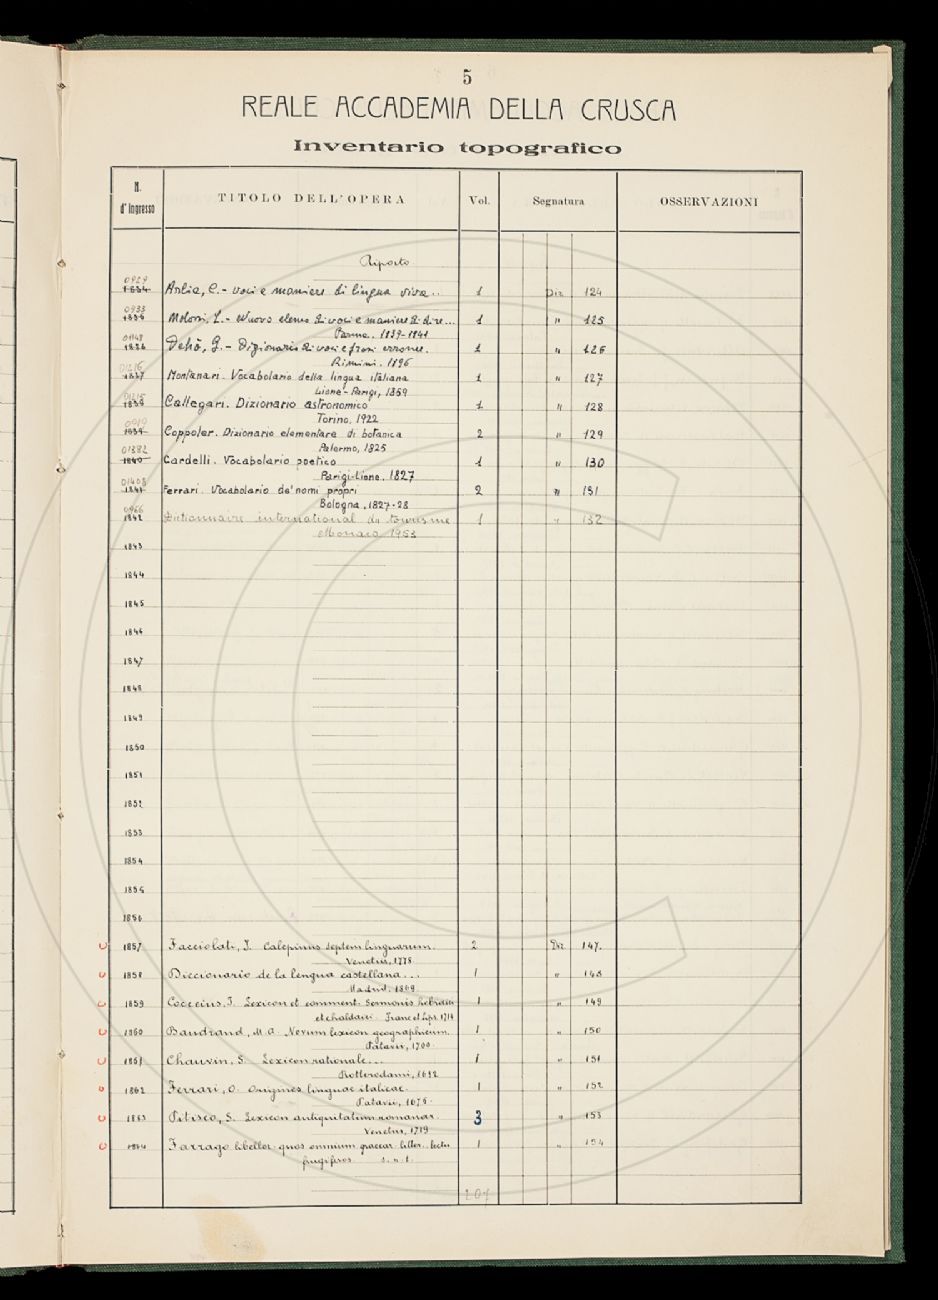 5
REALE ACCADEMIA DELLA CRUSCA
Inventario topografico
N. d'Ingresso TITOLO DELL'OPERA Vol. Segnatura OSSERVAZIONI
Riporto
0929
1834 Arlia, C. - voci e maniere di lingua viva.. 1 Diz 124
0933
1835 Molossi, L. - Nuovo elenco di voci e maniere di dire... 1 " 125
Parma. 1839-1841
01148
1836 Dehò, G. - Dizionario di voci e frasi erronee. 1 " 126
Rimini. 1896
01216
1837 Montanari. Vocabolario della lingua italiana 1 " 127
Lione-Parigi, 1869
01215
1838 Callegari. Dizionario astronomico 1 " 128
Torino. 1922
1839 Coppoler. Dizionario elementare di botanica 2 " 129
Palermo, 1825
01382
1840 Cardelli. Vocabolario poetico 1 " 130
Parigi-Lione. 1827
01408
1841 Ferrari. Vocabolario de' nomi propri 2 " 131
Bologna, 1827-28
0966
1842 Dictionnaire international du tourisme 1 " 132
Monaco 1953
1843
1844
1845
1846
1847
1848
1849
1850
1851
1852
1853
1854
1855
1856
1857 Facciolati, J. Calepinus septem linguarum. 2 Diz 147.
Venetiis, 1778
1858 Diccionario de la lengua castellana... 1 " 148
Madrid. 1869
1859 Cocceius, J. Lexicon et comment. Sermonis hebraici 1 " 149
et chaldaici. Franc et Lips. 1714
1860 Baudrand, M. A. Novum lexicon geographicum. 1 " 150
Patavii, 1700.
1861 Chauvin, S. Lexicon rationale... 1 " 151
Rotterodami, 1692
1862 Ferrari, O. Origines linguae italicae. 1 " 152
Patavii, 1676.
1863 Pitisco, S. Lexicon antiquitatum romanar. 3 " 153
Venetiis, 1719
1864 Farrago libellor. quos omnium graecar. litter. lectu 1 " 154
frugiferos. s. n. t.
207